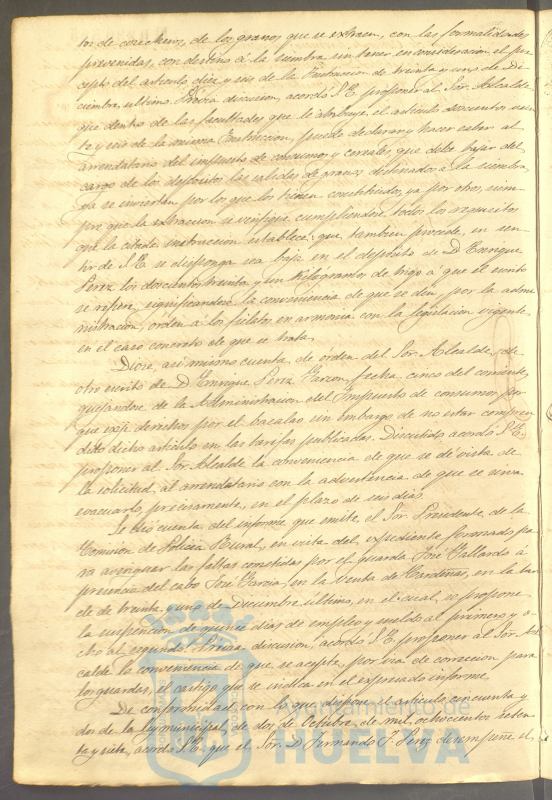 tos de cosecheros, de los granos que se extraen, con las formalidades
prevenidas, con destino á la siembra sin tener en consideracion el pre
cepto del artículo diez y seis de la Instruccion de treinta y uno de Di
ciembre último. Prévia discusion, acordó S.E. proponer al Sor. Alcalde
que dentro de las facultades que le atribuye el artículo doscientos vein
te y seis de la misma Instruccion, puede declarar y hacer saber al
arrendatario del impuesto de consumos y cereales, que debe bajar del
cargo de los depósitos las salidas de granos destinados a la siembra,
ya se inviertan por los que los tienen constituidos, ya por otros, siem
pre que la extraccion se verifique cumpliendose todos los requisitos
que la citada instruccion establece; que tambien procede, en sen
tir de S.E. se disponga sea baja en el depósito de D. Enrique
Perez los doscientos treinta y un kilogramos de trigo á que el escrito
se refiere, significandose la conveniencia de que se den, por la admi
nistracion, órden á los fielatos en armonia con la legislacion vigente,
en el caso concreto de que se trata.
Diose, asi mismo cuenta de órden del Sor. Alcalde, de
otro escrito de D. Enrique Perez Garzon, fecha cinco del corriente,
quejandose de la Administracion del Impuesto de consumos por
que exije derechos por el bacalao sin embargo de no estar compren
dido dicho artículo en las tarifas publicadas. Discutido, acordó S.E.
proponer al Sor. Alcalde la conveniencia de que se dé vista de
la solicitud, al arrendatario con la advertencia de que se sirva
evacuarlo, precisamente, en el plazo de seis dias.
Se dió cuenta del informe que emite el Sor. Presidente de la
Comision de Policia Rural, en vista del expediente formado pa
ra averiguar las faltas cometidas por el guarda José Gallardo á
presencia del cabo José Garcia, en la Venta de Cardeñas, en la tar
de de treinta y uno de Diciembre último, en el cual se propone
la suspencion de quince dias de empleo y sueldo al primero y o
cho al segundo. Prévia discusion, acordó S.E. proponer al Sor. Al
calde la conveniencia de que se acepte, por via de correccion para
los guardas, el castigo que se indica en el expresado informe.
De conformidad con lo que dispone el artículo cincuenta y
dos de la ley municipal, de dos de Octubre, de mil ochocientos seten
ta y siete, acordó S.E. que el Sor. D. Fernando J. Perez desempeñe el
Ayuntamiento de
HUELVA